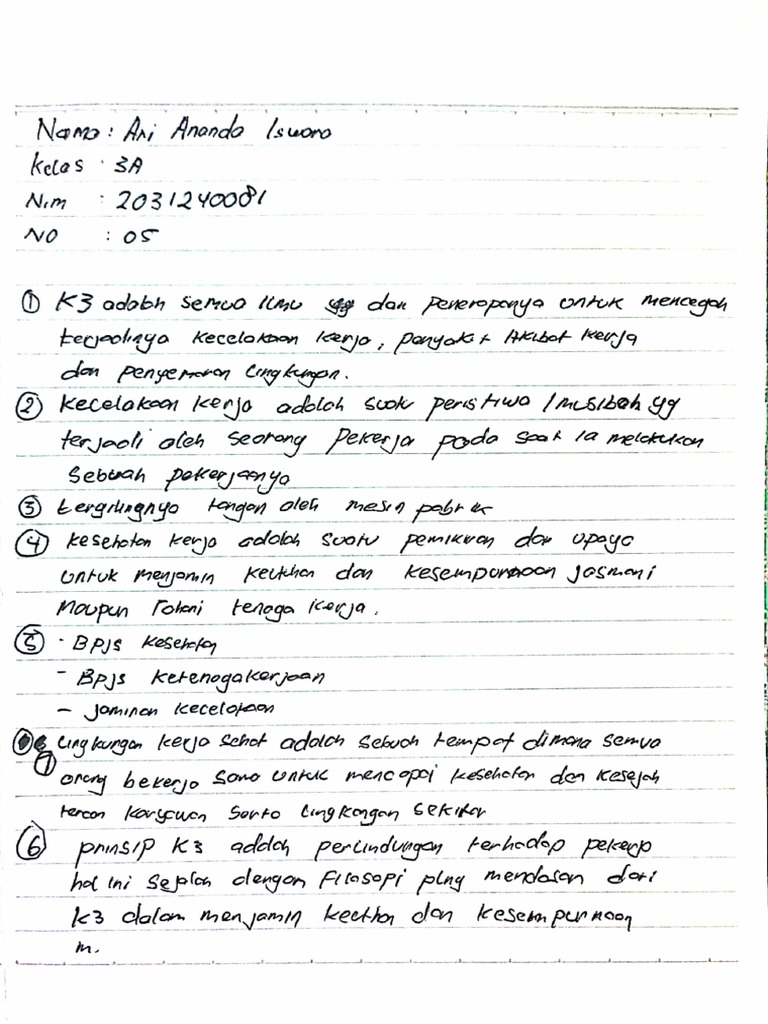 Nama : Ari Ananda Iswara
Kelas : 3A
Nim : 2031240081
NO : 05
① K3 adalah semua Ilmu dan Penerapanya untuk mencegah
terjadinya kecelakaan kerja, penyakit Akibat kerja
dan penyemaran lingkungan.
② kecelakaan kerja adalah suatu peristiwa / musibah yg
terjadi oleh seorang Pekerja pada saat ia melakukan
sebuah pekerjaanya
③ tergilingnya tangan oleh mesin pabrik
④ kesehatan kerja adalah suatu pemikiran dan upaya
untuk menjamin keutuhan dan kesempurnaan jasmani
maupun rohani tenaga kerja.
⑤ - BPJS kesehatan
- BPJS ketenagakerjaan
- jaminan kecelakaan
lingkungan kerja sehat adalah sebuah tempat dimana semua
⑦ orang bekerja sama untuk mencapai kesehatan dan kesejah
teraan karyawan serta lingkungan sekitar
⑥ prinsip K3 adalah perlindungan terhadap pekerja
hal ini sejalan dengan filosapi plng mendasar dari
K3 dalam menjamin keuthan dan kesempurnaan
m.